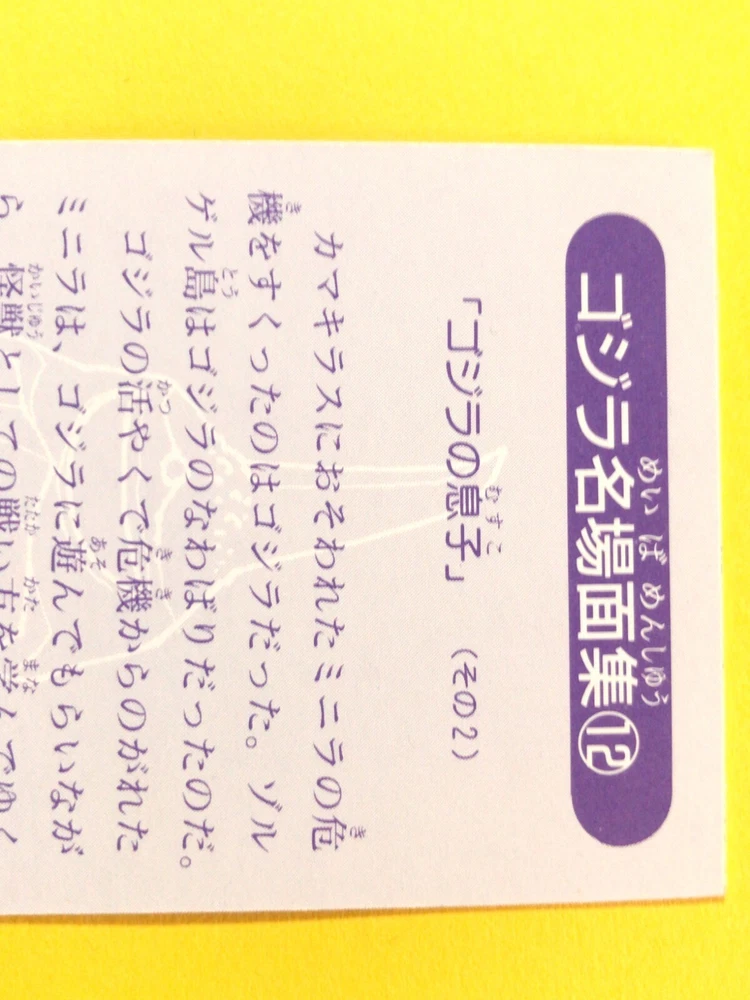 ゴジラ名場面集⑫
「ゴジラの息子」 (その2)
カマキラスにおそわれたミニラの危
機をすくったのはゴジラだった。ゾル
ゲル島はゴジラのなわばりだったのだ。
ゴジラの活やくで危機からのがれた
ミニラは、ゴジラに遊んでもらいなが
ら怪獣としての戦い方を学んでゆく